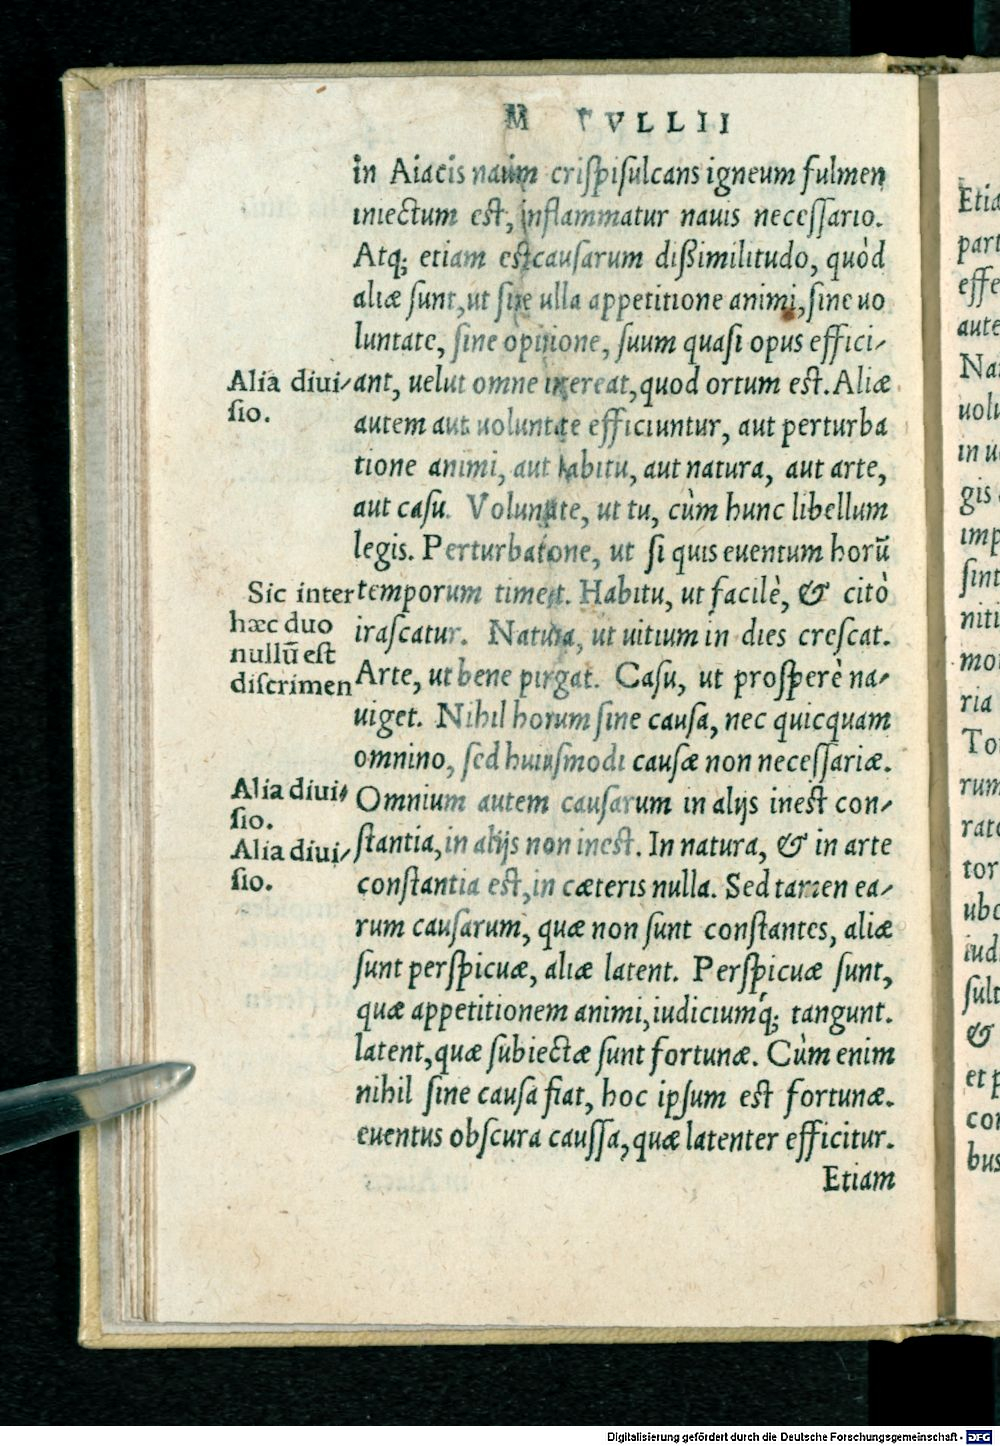 M TVLLII
in Aiacis nauim crispisulcans igneum fulmen
iniectum est, inflammatur nauis necessario.
Atq; etiam est causarum dißimilitudo, quòd
aliæ sunt, ut sine ulla appetitione animi, sine uo
luntate, sine opinione, suum quasi opus effici-
Alia diui-
sio.
ant, uelut omne intereat, quod ortum est. Aliæ
autem aut uoluntate efficiuntur, aut perturba
tione animi, aut habitu, aut natura, aut arte,
aut casu. Voluntate, ut tu, cùm hunc libellum
legis. Perturbatione, ut si quis euentum horū
Sic inter
hæc duo
nullū est
discrimen
temporum timeat. Habitu, ut facilè, & citò
irascatur. Natura, ut uitium in dies crescat.
Arte, ut bene pingat. Casu, ut prosperè na-
uiget. Nihil horum sine causa, nec quicquam
omnino, sed huiusmodi causæ non necessariæ.
Alia diui-
sio.
Omnium autem causarum in alijs inest con-
Alia diui-
sio.
stantia, in alijs non inest. In natura, & in arte
constantia est, in cæteris nulla. Sed tamen ea-
rum causarum, quæ non sunt constantes, aliæ
sunt perspicuæ, aliæ latent. Perspicuæ sunt,
quæ appetitionem animi, iudiciumq́; tangunt.
latent, quæ subiectæ sunt fortunæ. Cùm enim
nihil sine causa fiat, hoc ipsum est fortunæ.
euentus obscura caussa, quæ latenter efficitur.
Etiam
Etia
part
effe
aute
Na
uolu
in u
gis
imp
sint
niti
mo
ria
To
rum
rato
tor
ubo
iud
sult
&
et p
con
bus
Digitalisierung gefördert durch die Deutsche Forschungsgemeinschaft - DFG